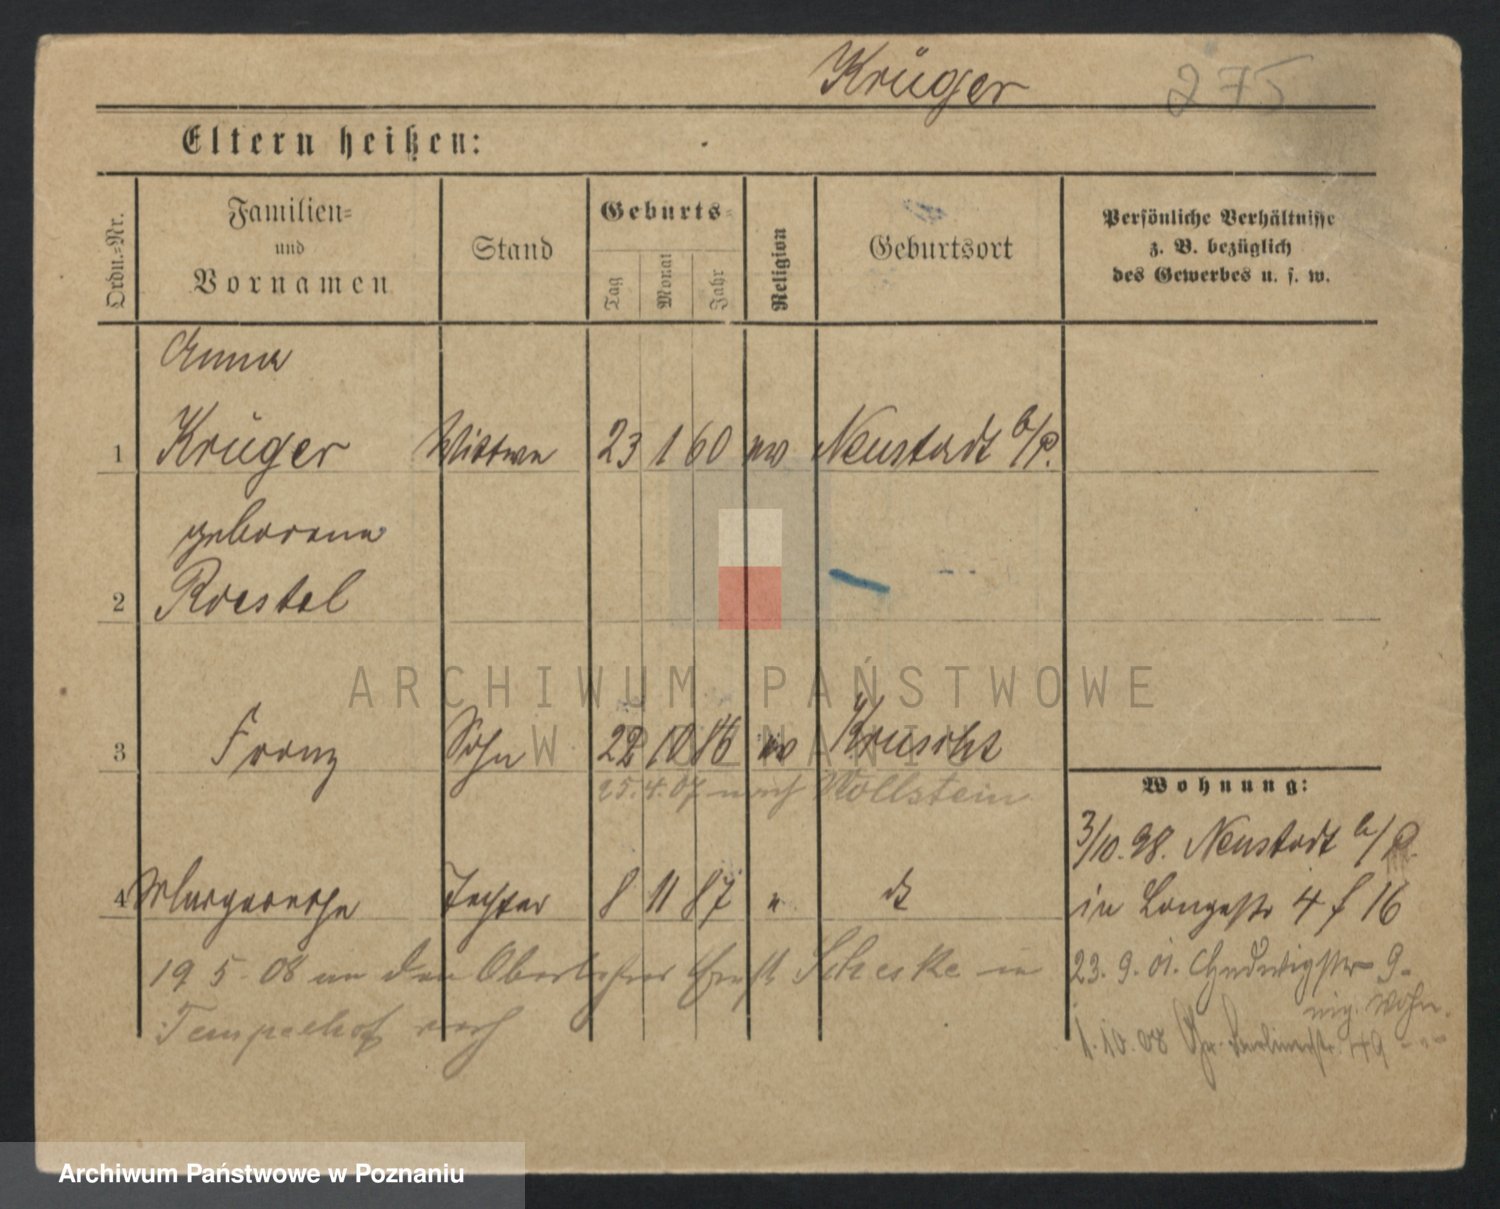 Krüger 275
Eltern heißen:
Ordn.-Nr.
Familien-
und
Vornamen
Stand
Geburts-
Tag
Monat
Jahr
Religion
Geburtsort
Persönliche Verhältnisse
z. B. bezüglich
des Gewerbes u. s. w.
Anna
1 Krüger Wittwe 23 1 60 ev Neustadt b/P.
geborene
2 Roestel
ARCHIWUM PAŃSTWOWE
W POZNANIU
3 Franz Sohn 22 10 86 ev
25.4.07 nach Wollstein
Wohnung:
3/10.98. Neustadt b/P.
4 Margarethe Tochter 8 11 87 " dt
in Langestr 4 f 16
19 5 08 an den Oberlehrer Ernst Scheske in
Tempelhof
23. 9. 01. 9.
Wohn.
1.10.08 Berlinerstr. 49
Archiwum Państwowe w Poznaniu